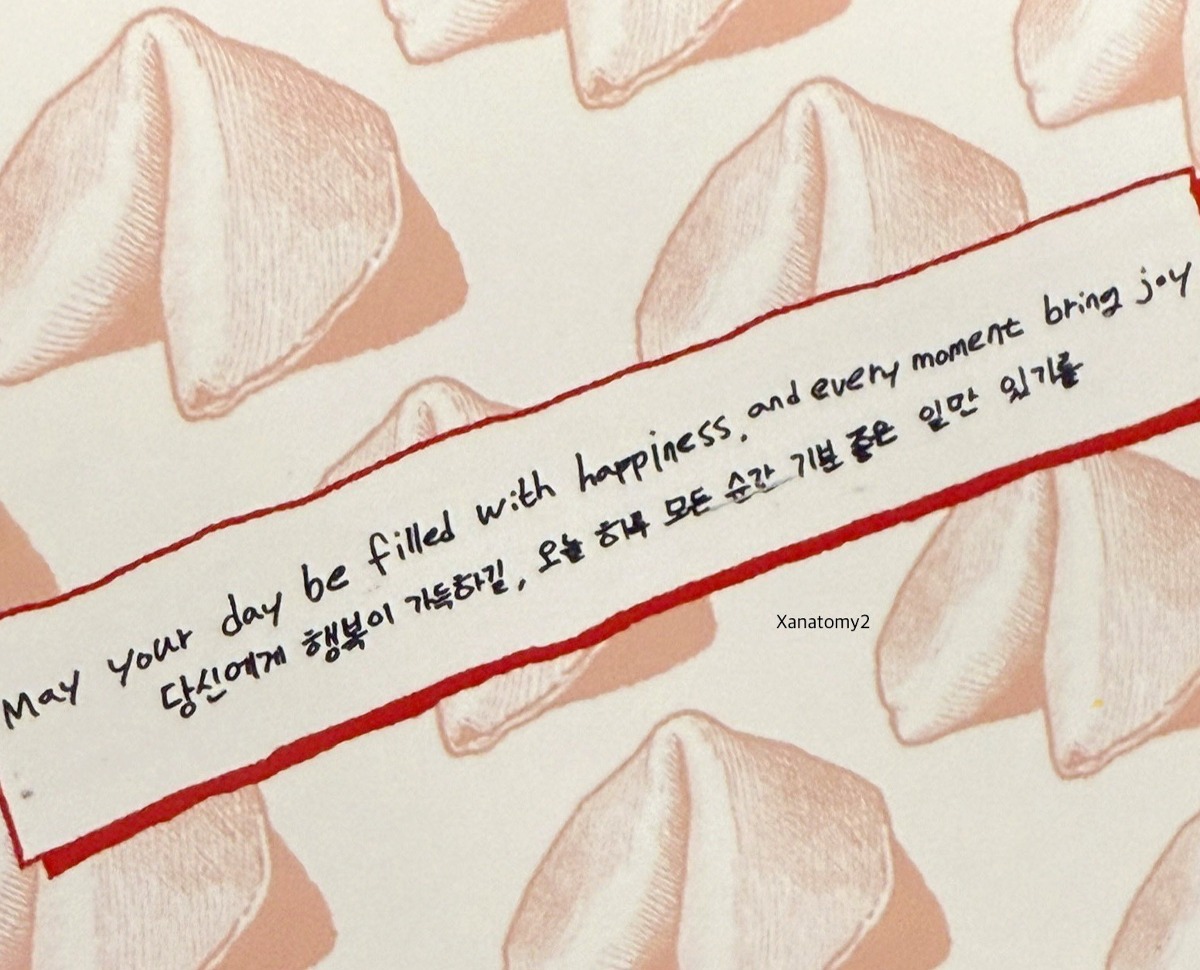 May your day be filled with happiness, and every moment bring joy
당신에게 행복이 가득하길, 오늘 하루 모든 순간 기분 좋은 일만 있기를
Xanatomy2